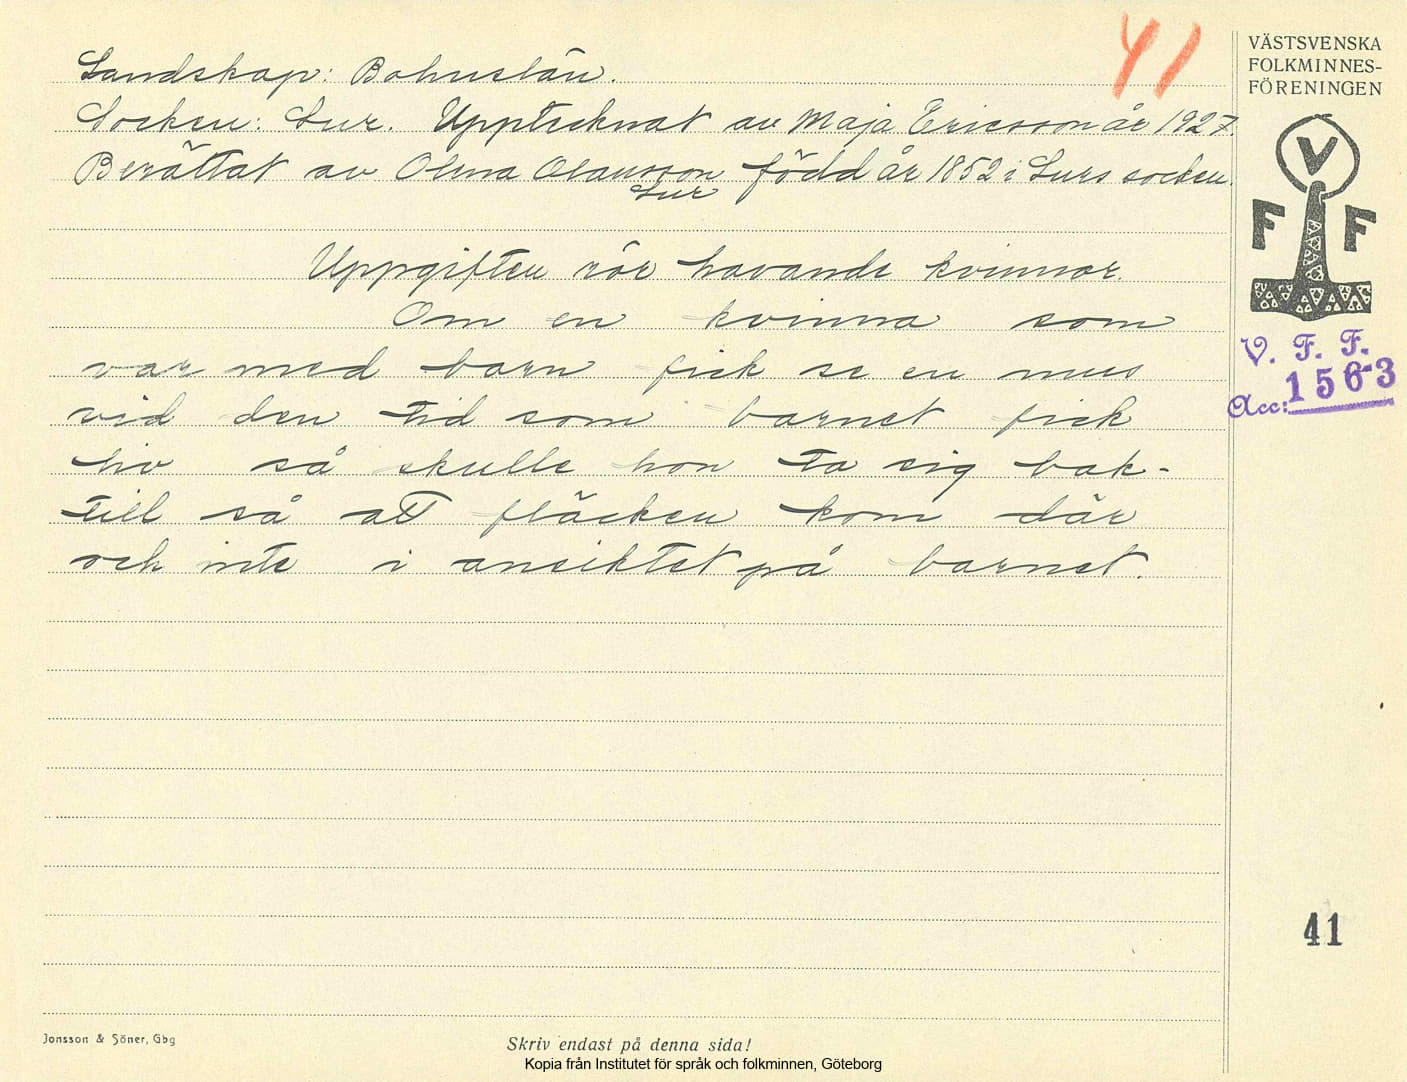 41
Landskap: Bohuslän.
Socken: Lur. Upptecknat av Maja Ericsson år 1927.
Berättat av Olena Olausson född år 1852 i Lurs socken.
Lur
Uppgiften rör havande kvinnor.
Om en kvinna som
var med barn fick se en mus
vid den tid som barnet fick
liv så skulle hon ta sig bak-
till så att fläcken kom där
och inte i ansiktet på barnet.
VÄSTSVENSKA
FOLKMINNES-
FÖRENINGEN
V
F F
V. F. F.
Acc: 1563
41
Jonsson & Söner, Gbg
Skriv endast på denna sida!
Kopia från Institutet för språk och folkminnen, Göteborg